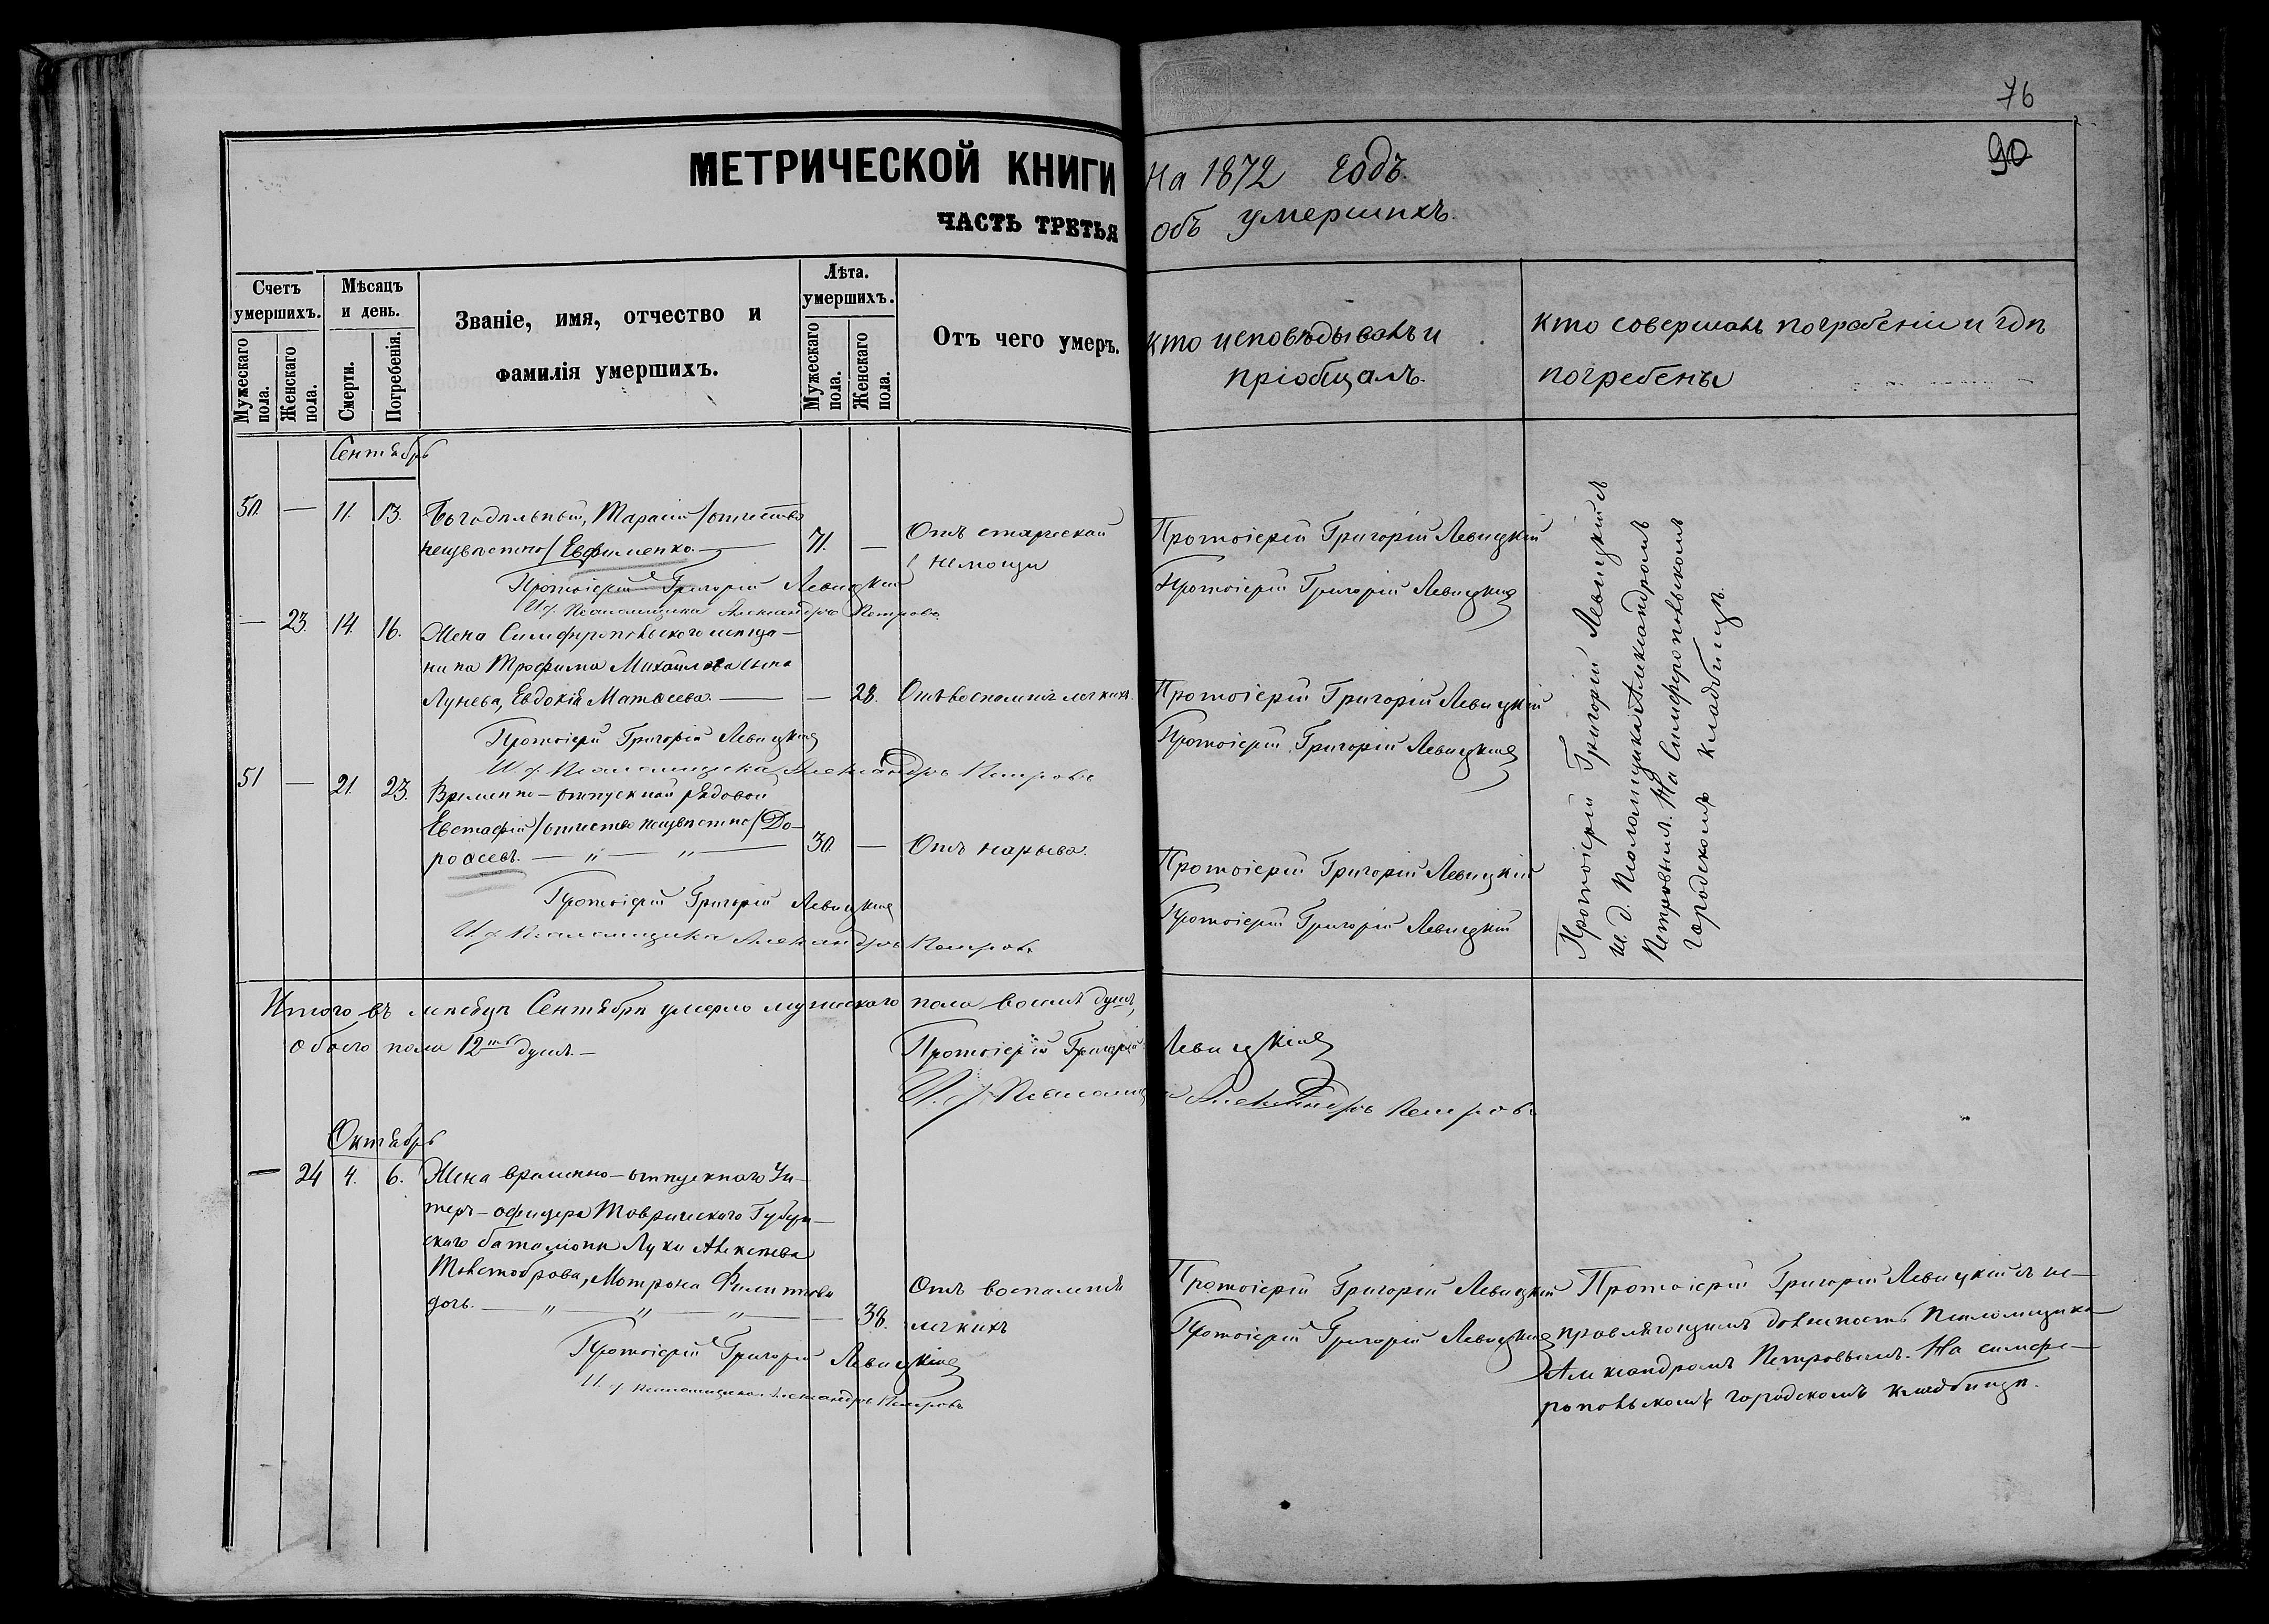 76
90
МЕТРИЧЕСКОЙ КНИГИ
На 1872 годъ.
ЧАСТЬ ТРЕТЬЯ
объ умершихъ.
Счетъ умершихъ.
Мѣсяцъ и день.
Званіе, имя, отчество и
фамилія умершихъ.
Лѣта. умершихъ.
Отъ чего умеръ.
Мужескаго пола.
Женскаго пола.
Смерти.
Погребенія.
Мужескаго пола.
Женскаго пола.
Кто исповѣдывалъ и
пріобщалъ.
Кто совершалъ погребеніе и гдѣ
погребены
Сентябрь
50. — 11. 13. Богодѣльный, Тарасій /отчество
неизвѣстно/ Евфименко. — 71. — Отъ старческой
немощи
Протоіерей Григорій Левицкій
Протоіерей Григорій Левицкій
Протоіерей Григорій Левицкій
И. д. Псаломщика Александръ Петровъ
— 23. 14. 16. Жена Симферопольскаго мѣща-
нина Трофима Михайлова сына
Лунева, Евдокія Матвеева. — — 28. Отъ воспаленія легкихъ.
Протоіерей Григорій Левицкій
Протоіерей Григорій Левицкій
Протоіерей Григорій Левицкій
И. д. Псаломщика Александръ Петровъ
51 — 21. 23. Временно-отпускной рядовой
Евстафій /отчество неизвѣстно/ До-
роѳеевъ. — " — " — 30. — Отъ нарыва.
Протоіерей Григорій Левицкій
Протоіерей Григорій Левицкій
Протоіерей Григорій Левицкій
И. д. Псаломщика Александръ Петровъ
Протоіерей Григорій Левицкій съ
и. д. Псаломщика Александромъ
Петровымъ. На Симферопольскомъ
городскомъ кладбищѣ.
Итого въ мѣсяцѣ Сентябрѣ умерло мужескаго пола восемь душъ,
обоего пола 12ть душъ. —
Протоіерей Григорій Левицкій
И. д. Псаломщика Александръ Петровъ
Октябрь
— 24 4. 6. Жена временно-отпускнаго Ун-
теръ-офицера Таврическаго Губерн-
скаго баталіона Луки Алексѣева
Матрона Филиппова
дочь. — " — " — " — — 38. Отъ воспаленія
легкихъ
Протоіерей Григорій Левицкій
И. д. псаломщика Александръ Петровъ
Протоіерей Григорій Левицкій
Протоіерей Григорій Левицкій
Протоіерей Григорій Левицкій съ ис-
правляющимъ должность Псаломщика
Александромъ Петровымъ. На симфе-
ропольскомъ городскомъ кладбищѣ.